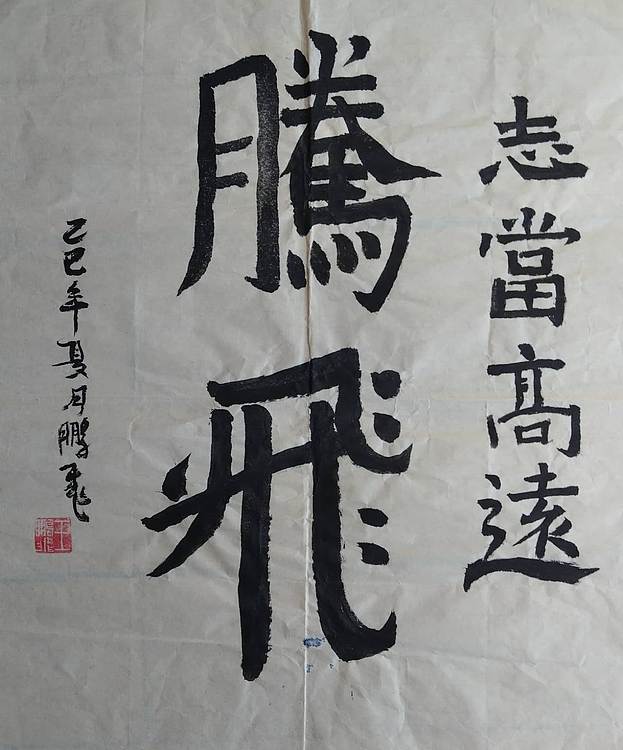 志當高遠
騰飛
乙巳年夏月鵬飛